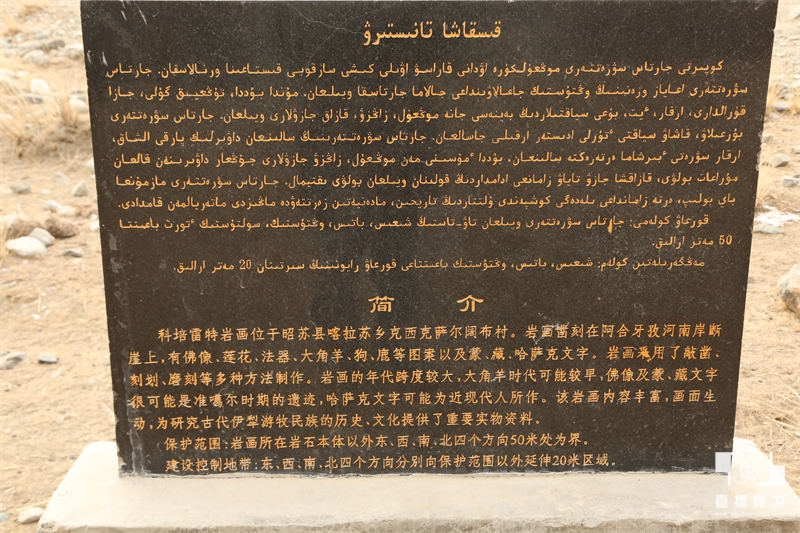 قىسقاشا تانىستىرۋ
كوپىرتى جارتاس سۋرەتتەرى موڭعۇلكۇرە اۋدانى قاراسۋ اۋىلى كىشى سارقوبى قىستاعىنا ورنالاسقان. جارتاس
سۋرەتتەرى اعاياز وزەنىنىڭ وڭتۇستىك جاعالاۋىنداعى جالاما جارتاسقا ويىلعان. مۇندا بۋددا،
قۇرالدارى، ارقار، ٴيت، بۇعى سياقتىلاردىڭ بەينەسى جانە موڭعۇل، زاڭزۋ، قازاق جازۋلارى ويىلعان. جارتاس سۋرەتتەرى
بۇرعىلاۋ، قاشاۋ سياقتى ٴتۇرلى ادىستەر ارقىلى جاسالعان. جارتاس سۋرەتتەرىنىڭ سالىنعان داۋىرلىك پارقى الشاق،
ارقار سۋرەتى ٴبىرشاما ەرتەرەكتە سالىنعان، بۋددا ٴمۇسىنى مەن موڭعۇل، زاڭزۋ جازۋلارى جوڭعار داۋىرىنەن قالعان
مۇراعات بولۋى، قازاقشا جازۋ تاياۋ زامانعى ادامداردىڭ قولىنان ويىلعان بولۋى ىقتيمال. جارتاس سۋرەتتەرى مازمۇنعا
باي بولىپ، ەرتە زامانداعى ىلەدەگى كوشپەندى ۇلتتاردىڭ تاريحىن، مادەنيەتىن زەرتتەۋدە ماڭىزدى ماتەريالمەن قامدادى.
قورعاۋ كولەمى: جارتاس سۋرەتتەرى ويىلعان تاۋ-تاستىڭ شىعىس، باتىس، وڭتۇستىك، سولتۇستىك ٴتورت باعىتتا
50 مەتر ارالىق.
مەڭگەرىلەتىن كولەم: شىعىس، باتىس، وڭتۇستىك باعىتتاعى قورعاۋ رايونىنىڭ سىرتىنان 20 مەتر ارالىق.
简 介
科培雷特岩画位于昭苏县喀拉苏乡克西克萨尔阔布村。岩画凿刻在阿合牙孜河南岸断
崖上，有佛像、莲花、法器、大角羊、狗、鹿等图案以及蒙、藏、哈萨克文字。岩画采用了敲凿、
刻划、磨刻等多种方法制作。岩画的年代跨度较大，大角羊时代可能较早，佛像及蒙、藏文字
很可能是准噶尔时期的遗迹，哈萨克文字可能为近现代人所作。该岩画内容丰富，画面生
动，为研究古代伊犁游牧民族的历史、文化提供了重要实物资料。
保护范围：岩画所在岩石本体以外东、西、南、北四个方向50米处为界。
建设控制地带：东、西、南、北四个方向分别向保护范围以外延伸20米区域。
直播昭苏